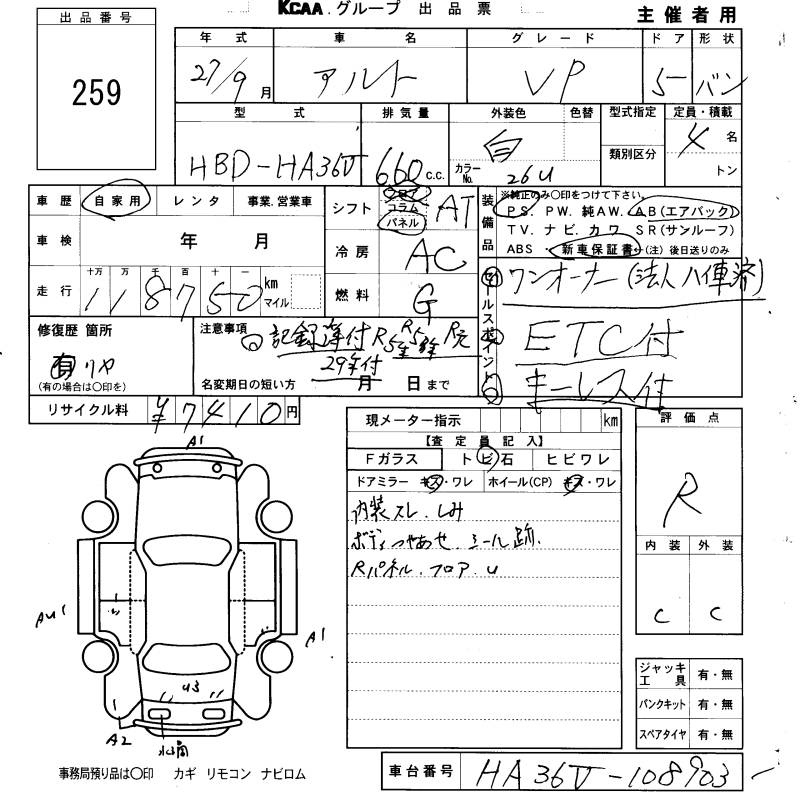 KCAA.グループ 出品票
主催者用
出品番号
259
年式 車名 グレード ドア 形状
27/9月 アルト VP 5 バン
型式 排気量 外装色 色替 型式指定 定員・積載
HBD-HA36V 660 c.c. 白 カラーNo. 26U 類別区分 4名 トン
車歴 自家用 レンタ 事業.営業車
シフト フロア コラム パネル AT
装備品 ※純正のみ〇印をつけて下さい。
PS. PW. 純AW. AB(エアバック)
TV. ナビ. カワ. SR(サンルーフ)
ABS ・ 新車保証書 ←(注) 後日送りのみ
車検 年 月
冷房 AC
走行 十万 万 千 百 十 一
118750 km マイル
燃料 G
セールスポイント
ワンオーナー(法人ハイ車済)
ETC付
キーレス付
修復歴 箇所
有 リヤ
(有の場合は〇印を)
注意事項
記録簿付 R5年 R元
29年付
名変期日の短い方 月 日まで
リサイクル料 ¥7410円
現メーター指示 km
【査定員記入】
Fガラス トビ石 ヒビワレ
ドアミラー キズ・ワレ ホイール(CP) キズ・ワレ
内装スレ.しみ
ボディつやあせ.シール跡.
Rパネル.フロア.U
評価点
R
内装 外装
C C
ジャッキ工具 有・無
パンクキット 有・無
スペアタイヤ 有・無
A1
AU1
A1
U3
A2
事務局預り品は〇印 カギ リモコン ナビロム
車台番号 HA36V-108903